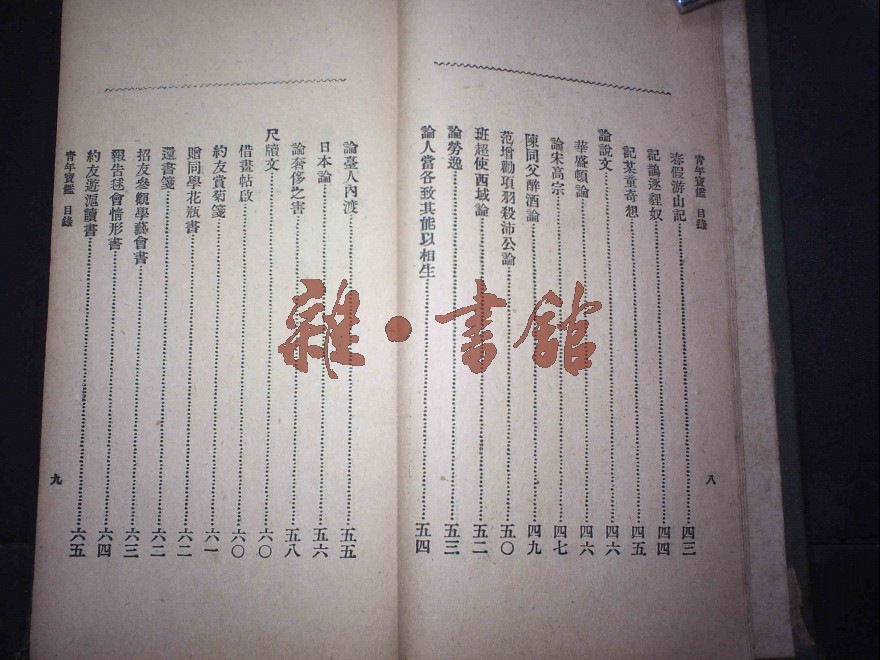 青年寶鑑 目錄
春假游山記四三
記鵲逐貍奴四四
記某童奇想四五
論說文四六
華盛頓論四六
論宋高宗四七
陳同父醉酒論四九
范增勸項羽殺沛公論五〇
班超使西域論五二
論勞逸五三
論人當各致其能以相生五四
八
論臺人內渡五五
日本論五六
論奢侈之害五八
尺牘文六〇
借畫帖啟六〇
約友賞菊箋六一
贈同學花瓶書六二
還書箋六二
招友參觀學藝會書六三
報告毬會情形書六四
約友遊滬讀書六五
青年寶鑑 目錄
九
雜·書館